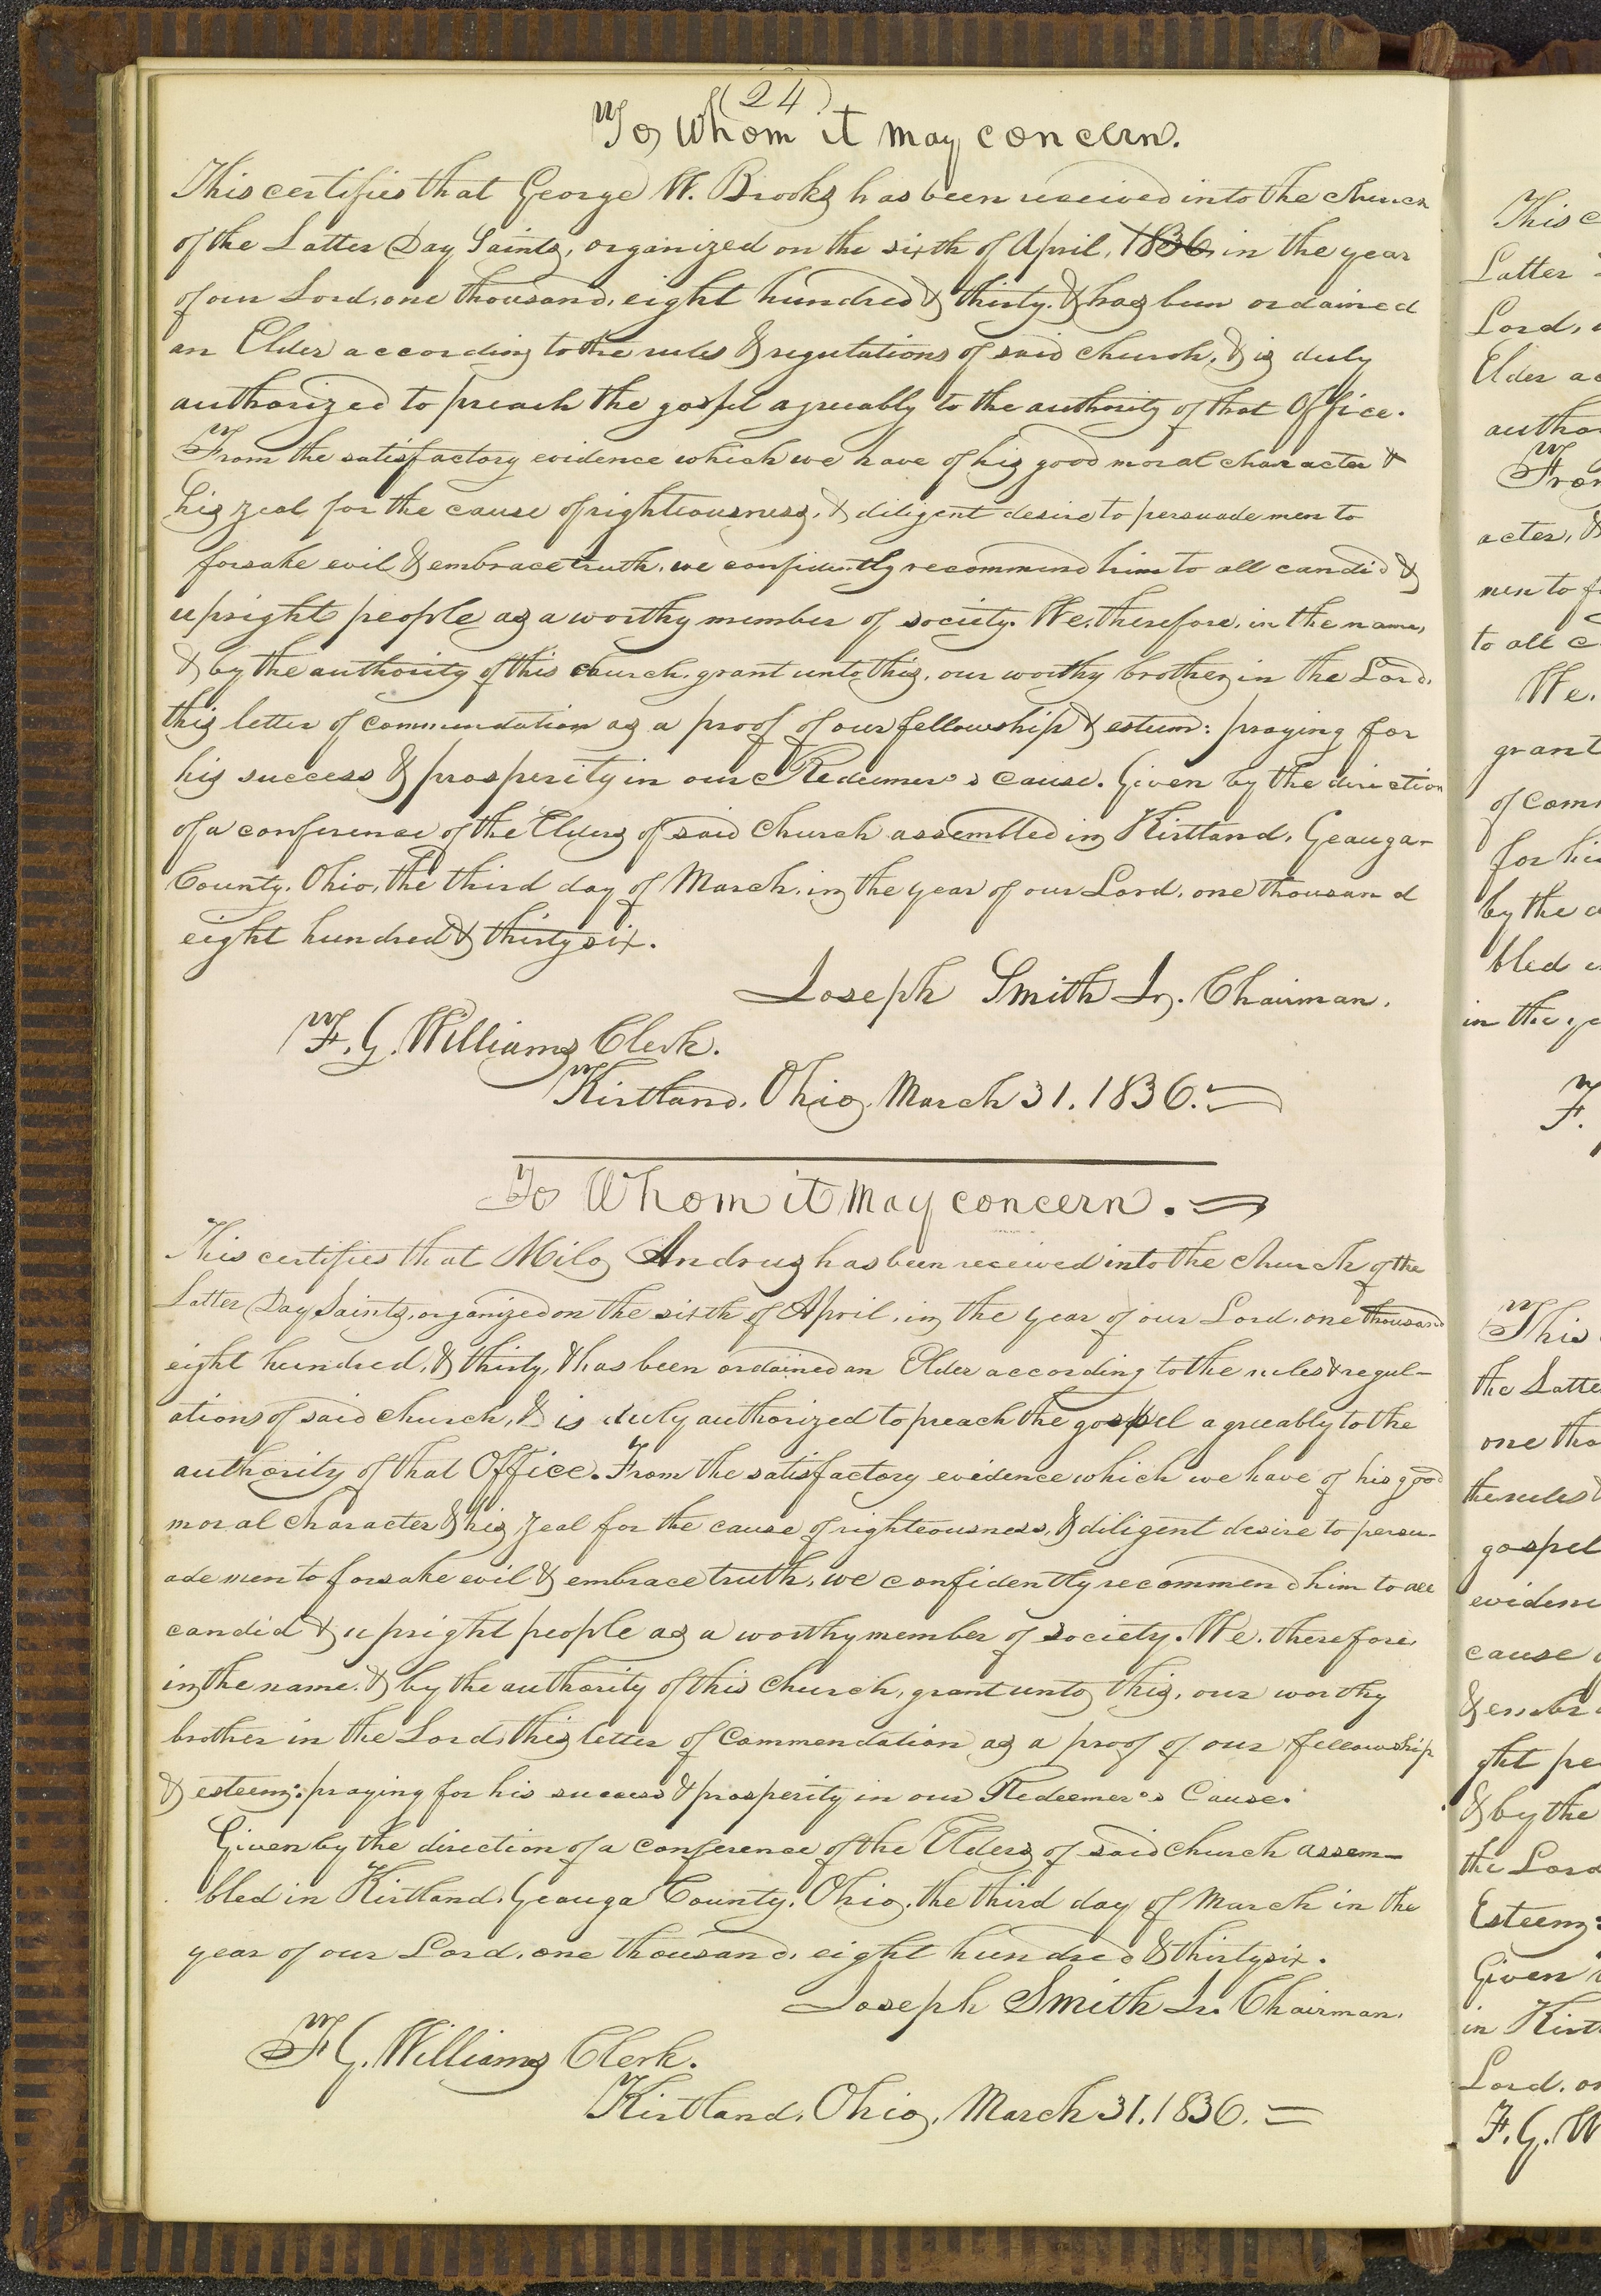 (24)
To Whom it may concern.
This certifies that George W. Brooks has been received into the church
of the Latter Day Saints, organized on the sixth of April, 1836, in the year
of our Lord, one thousand, eight hundred & thirty. & has been ordained
an Elder according to the rules & regulations of said church, & is duly
authorized to preach the gospel agreeably to the authority of that Office.
From the satisfactory evidence which we have of his good moral character &
his zeal for the cause of righteousness, & diligent desire to persuade men to
forsake evil & embrace truth, we confidently recommend him to all candid &
upright people as a worthy member of society. We, therefore, in the name,
& by the authority of this church, grant unto this, our worthy brother in the Lord,
this letter of commendation as a proof of our fellowship & esteem: praying for
his success & prosperity in our Redeemer's cause. Given by the direction
of a conference of the Elders of said Church assembled in Kirtland, Geauga-
County, Ohio, the third day of March, in the year of our Lord, one thousand
eight hundred & thirty six.
Joseph Smith Jr. Chairman.
F. G. Williams Clerk.
Kirtland, Ohio, March 31, 1836.
To Whom it May concern.
This certifies that Milo Andrus has been received into the church of the
Latter Day Saints, organized on the sixth of April, in the year of our Lord, one thousand
eight hundred, & thirty, & has been ordained an Elder according to the rules & regul-
ations of said church, & is duly authorized to preach the gospel agreeably to the
authority of that Office. From the satisfactory evidence which we have of his good
moral character & his zeal for the cause of righteousness, & diligent desire to persu-
ade men to forsake evil & embrace truth, we confidently recommend him to all
candid & upright people as a worthy member of society. We, therefore,
in the name, & by the authority of this Church, grant unto this, our worthy
brother in the Lord, this letter of Commendation as a proof of our fellowship
& esteem: praying for his success & prosperity in our Redeemer's Cause.
Given by the direction of a conference of the Elders of said church assem-
bled in Kirtland, Geauga County, Ohio, the third day of March in the
year of our Lord, one thousand, eight hundred & thirty six.
Joseph Smith Jr. Chairman.
F G. Williams Clerk.
Kirtland, Ohio, March 31, 1836.
This c
Latter
Lord,
Elder ac
author
From
acter, &
men to f
to all c
We,
grant
of com
for his
by the
bled
in the ye
F.
This
the Latte
one tho
the rules
gospel
evidenc
cause
& embr
ght pe
& by the
the Lord
Esteem:
Given
in Kirt
Lord, on
F. G. W